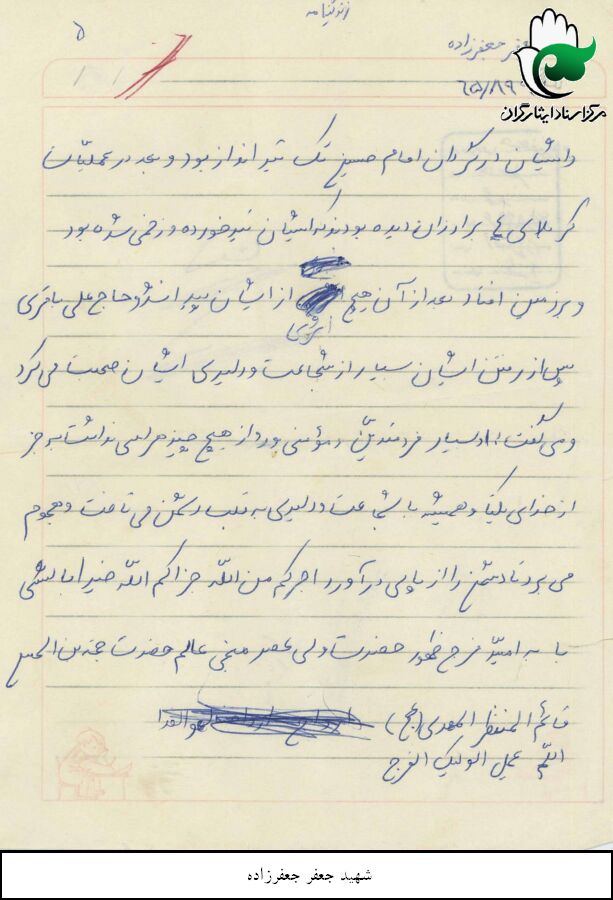 زندگینامه
۵
جعفر جعفرزاده
۶۵/۸۹۰
مرکز اسناد ایثارگران
و ایشان در گردان امام حسین تک تیر انداز بود و بعد در عملیات
کربلای ۴ برادران دیده بودند که ایشان تیر خورده و زخمی شده بود
و بر زمین افتاد بعد از آن هیچ از ایشان پیدا نشد و حاج علی باقری
اثری
پس از رفتن ایشان بسیار از شجاعت و دلیری ایشان صحبت می کرد
و می گفت او بسیار فرد متدین و مؤمنی بود از هیچ چیز هراسی نداشت به جز
از خدای یکتا و همیشه با شجاعت و دلیری به قلب دشمن می تاخت و هجوم
می برد تا دشمن را از پای در آورد اجرکم من الله جزاکم الله خیرا
با به امید فرج ظهور حضرت ولی عصر منجی عالم حضرت حجة بن الحسن
قائم المنتظر المهدی (عج)
اللهم عجل لولیک الفرج
شهید جعفر جعفرزاده